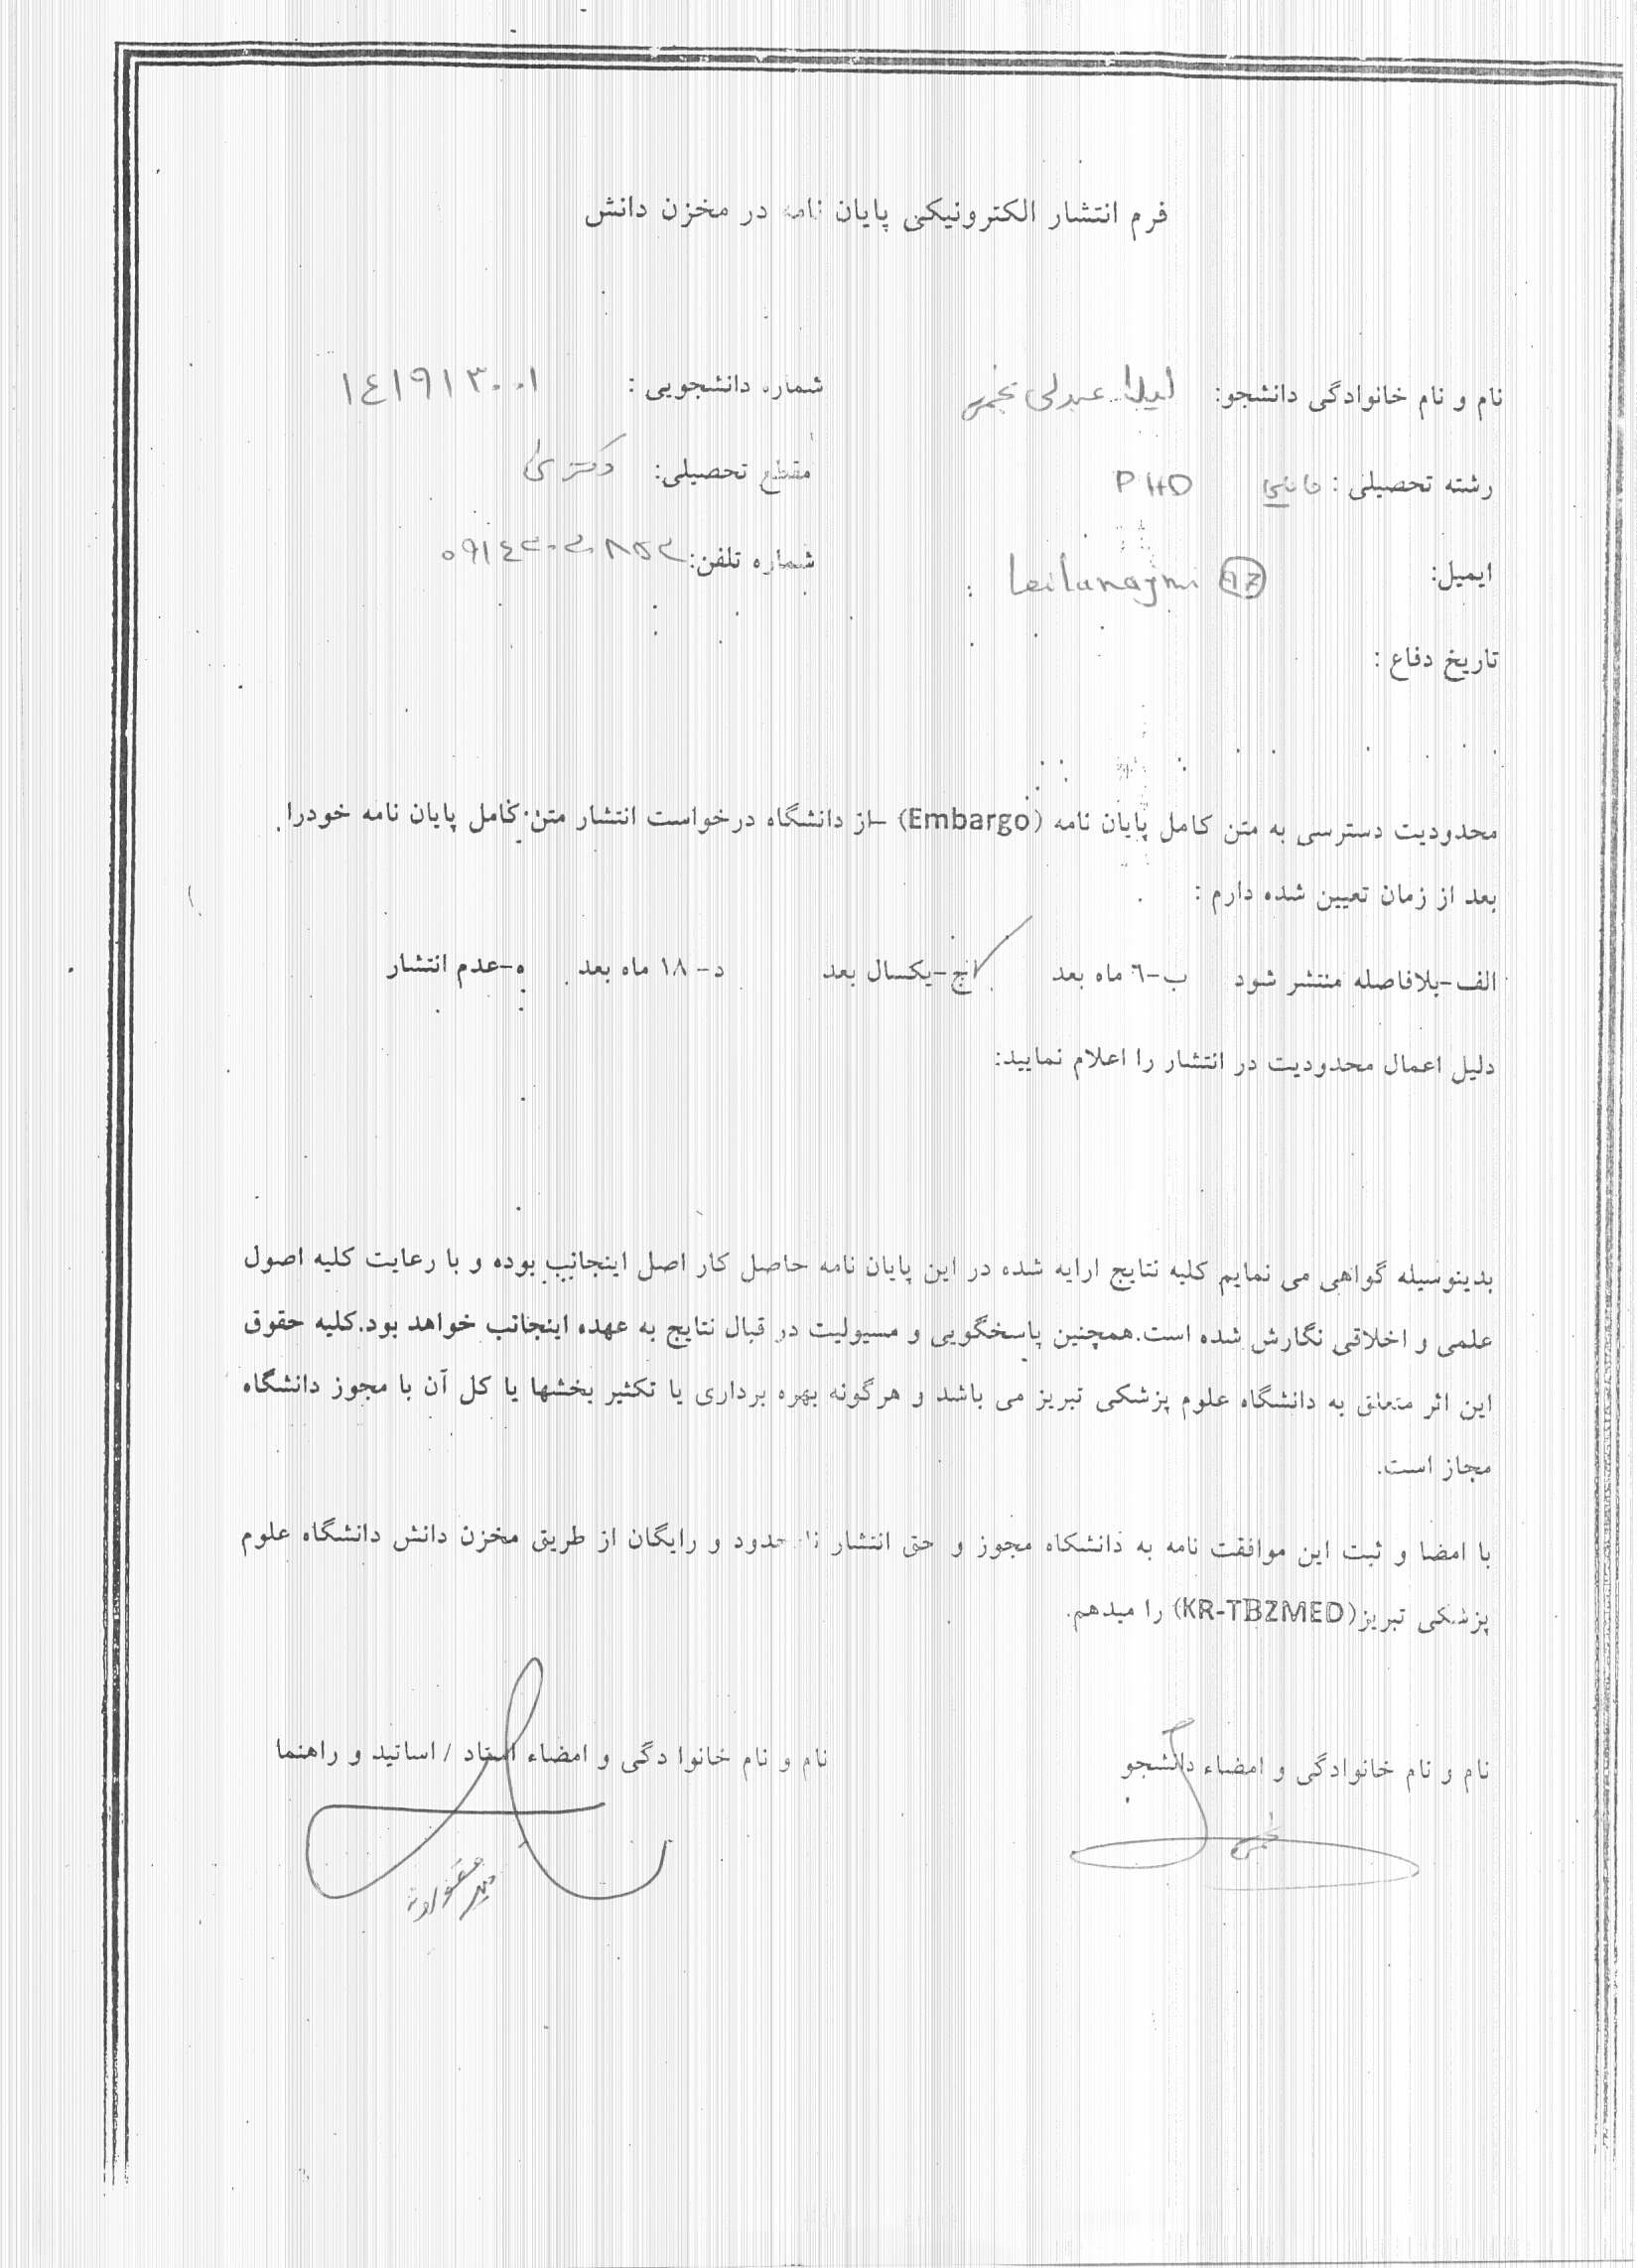 فرم انتشار الکترونیکی پایان نامه در مخزن دانش
نام و نام خانوادگی دانشجو: لیلا عبدلی نجمی شماره دانشجویی : ١٤١٩١٣٠٠١
رشته تحصیلی : PHD مقطع تحصیلی: دکتری
ایمیل: Leilanajmi شماره تلفن:
تاریخ دفاع :
محدودیت دسترسی به متن کامل پایان نامه (Embargo) –از دانشگاه درخواست انتشار متن کامل پایان نامه خودرا
بعد از زمان تعیین شده دارم :
الف-بلافاصله منتشر شود ب-٦ ماه بعد ج-یکسال بعد د- ١٨ ماه بعد ه-عدم انتشار
دلیل اعمال محدودیت در انتشار را اعلام نمایید:
بدینوسیله گواهی می نمایم کلیه نتایج ارایه شده در این پایان نامه حاصل کار اصل اینجانب بوده و با رعایت کلیه اصول
علمی و اخلاقی نگارش شده است.همچنین پاسخگویی و مسیولیت در قبال نتایج به عهده اینجانب خواهد بود.کلیه حقوق
این اثر متعلق به دانشگاه علوم پزشکی تبریز می باشد و هرگونه بهره برداری یا تکثیر بخشها یا کل آن با مجوز دانشگاه
مجاز است.
با امضا و ثبت این موافقت نامه به دانشکاه مجوز و حق انتشار نامحدود و رایگان از طریق مخزن دانش دانشگاه علوم
پزشکی تبریز(KR-TBZMED) را میدهم.
نام و نام خانوادگی و امضاء دانشجو نام و نام خانوا دگی و امضاء استاد / اساتید و راهنما
نجمی